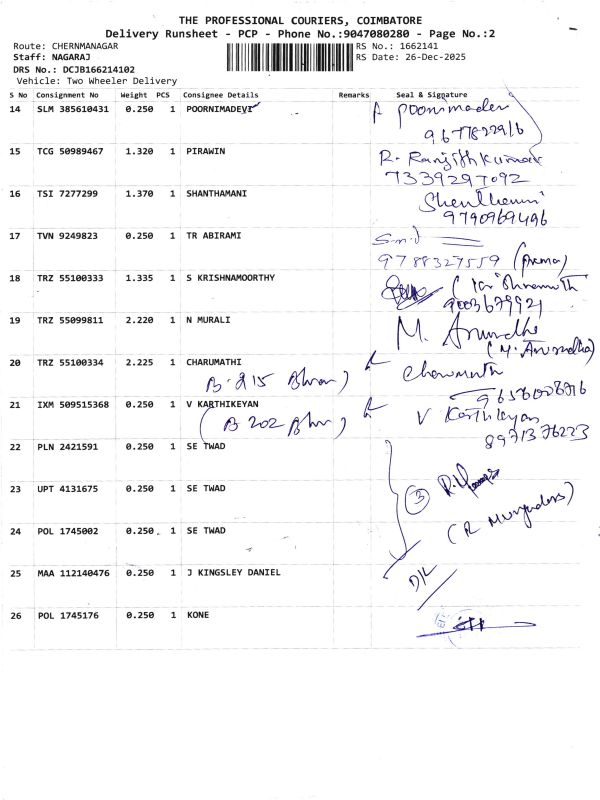 THE PROFESSIONAL COURIERS, COIMBATORE
Delivery Runsheet - PCP - Phone No.:9047080280 - Page No.:2
Route: CHERNMANAGAR RS No.: 1662141
Staff: NAGARAJ RS Date: 26-Dec-2025
DRS No.: DCJB166214102
Vehicle: Two Wheeler Delivery
S No Consignment No Weight PCS Consignee Details Remarks Seal & Signature
14 SLM 385610431 0.250 1 POORNIMADEVI
A poornimadevi
15 TCG 50989467 1.320 1 PIRAWIN
R. Ranjithkumar
7339297092
16 TSI 7277299 1.370 1 SHANTHAMANI
9790969496
17 TVN 9249823 0.250 1 TR ABIRAMI
9788327559 (prema)
18 TRZ 55100333 1.335 1 S KRISHNAMOORTHY
9003679921
19 TRZ 55099811 2.220 1 N MURALI
M.
20 TRZ 55100334 2.225 1 CHARUMATHI
B-215
21 IXM 509515368 0.250 1 V KARTHIKEYAN
V Karthikeyan
(B 202
8971376223
22 PLN 2421591 0.250 1 SE TWAD
23 UPT 4131675 0.250 1 SE TWAD
3
24 POL 1745002 0.250 1 SE TWAD
25 MAA 112140476 0.250 1 J KINGSLEY DANIEL
D/L
26 POL 1745176 0.250 1 KONE